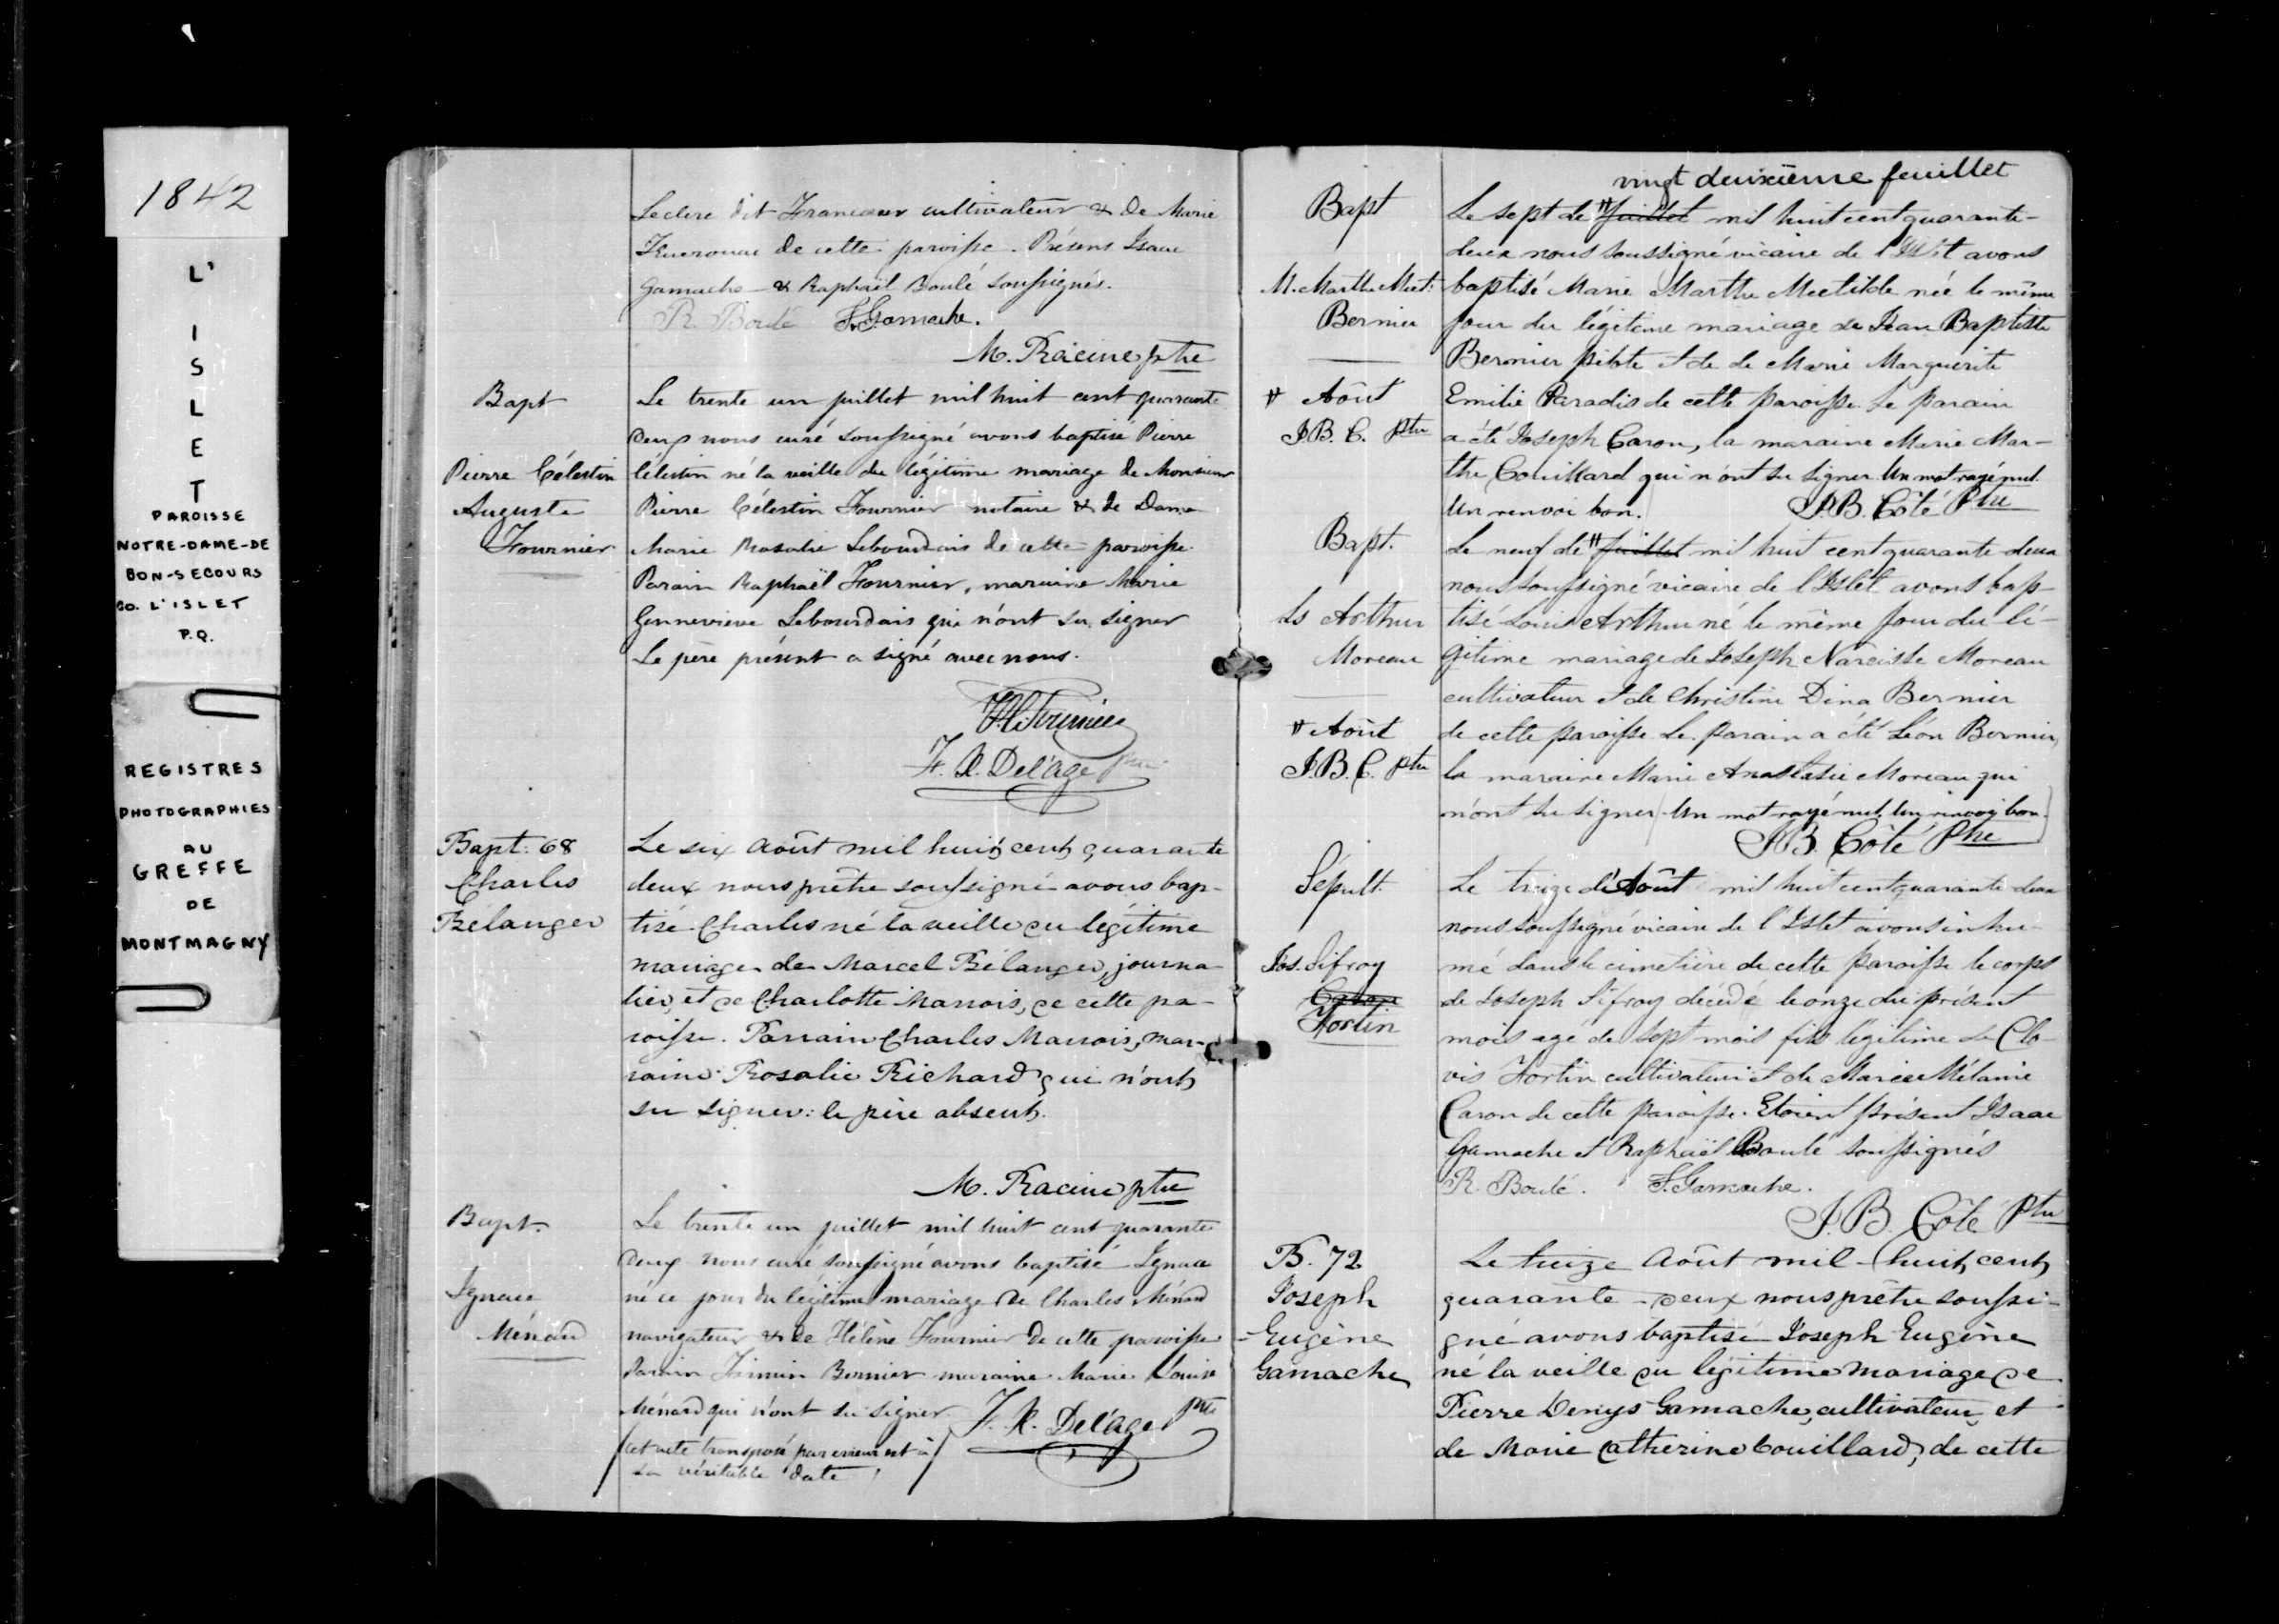 1842
L'
I
S
L
E
T
PAROISSE
NOTRE-DAME-DE
BON-SECOURS
CO. L'ISLET
P.Q.
REGISTRES
PHOTOGRAPHIES
AU
GREFFE
DE
MONTMAGNY
Leclerc dit Francoeur cultivateur & de Marie
de cette paroisse. Présens Isaac
Gamache & Raphaël Boulé soussignés.
R. Boulé I. Gamache.
M. Racine ptre
Bapt
Pierre Célestin
Auguste
Fournier
Le trente un juillet mil huit cent quarante
deux nous curé soussigné avons baptisé Pierre
Célestin né la veille du légitime mariage de Monsieur
Pierre Célestin Fournier notaire & de Dame
Marie Rosalie Lebourdais de cette paroisse.
Parain Raphaël Fournier, maraine Marie
Gennevieve Lebourdais qui n'ont su signer
Le père présent a signé avec nous.
P.C. Fournier
F. X. Delâge Ptre
Bapt: 68
Charles
Bélanger
Le six Août mil huit cent quarante
deux nous prêtre soussigné avons bap-
tisé Charles né la veille du légitime
mariage de Marcel Bélanger, journa-
lier, et de Charlotte Marrois, de cette pa-
roisse. Parrain Charles Marrois, mar-
raine Rosalie Richard qui n'ont
su signer: le père absent.
M. Racine ptre
Bapt.
Ignace
Ménard
Le trente un juillet mil huit cent quarante
deux nous curé soussigné avons baptisé Ignace
né ce jour du légitime mariage de Charles Ménard
navigateur & de Hélène Fournier de cette paroisse
Parain Firmin Bernier maraine Marie Louise
Ménard qui n'ont su signer. F. X. Delâge Ptre
(cet acte transposé par erreur est à
sa véritable date)
vingt deuxième feuillet
Bapt
M. Marthe Mect:
Bernier
# Août
J.B. C. Ptre
Le sept de # Juillet mil huit cent quarante-
deux nous soussigné vicaire de l'Islet avons
baptisé Marie Marthe Mectilde née le même
jour du légitime mariage de Jean Baptiste
Bernier pilote & de de Marie Marguerite
Emilie Paradis de cette paroisse. Le parain
a été Joseph Caron, la maraine Marie Mar-
the Couillard qui n'ont su signer. Un mot rayé nul.
Un renvoi bon. J.B. Côté Ptre
Bapt.
Ls Arthur
Moreau
# Août
J.B.C. Ptre
Le neuf de # Juillet mil huit cent quarante deux
nous soussigné vicaire de l'Islet avons bap-
tisé Louis Arthur né le même jour du lé-
gitime mariage de Joseph Narcisse Moreau
cultivateur & de Christine Dina Bernier
de cette paroisse. Le parain a été Léon Bernier,
la maraine Marie Anastasie Moreau qui
n'ont su signer. Un mot rayé nul. Un renvoi bon.
J.B. Côté Ptre
Sépult.
Jos. Sifroy
Caron
Fortin
Le treize d'Août mil huit cent quarante deux
nous soussigné vicaire de l'Islet avons inhu-
mé dans le cimetière de cette paroisse le corps
de Joseph Sifroy décédé le onze du présent
mois agé de sept mois fils légitime de Clo-
vis Fortin cultivateur et de Marie Mélanie
Caron de cette paroisse. Etoient présent Isaac
Gamache et Raphaël Boulé soussignés
R. Boulé. I. Gamache.
J.B. Côté Ptre
B. 72
Joseph
Eugène
Gamache
Le treize Août mil-huit cent
quarante-deux nous prêtre soussi-
gné avons baptisé Joseph Eugène
né la veille du légitime mariage de
Pierre Denys Gamache, cultivateur, et
de Marie Catherine Couillard, de cette